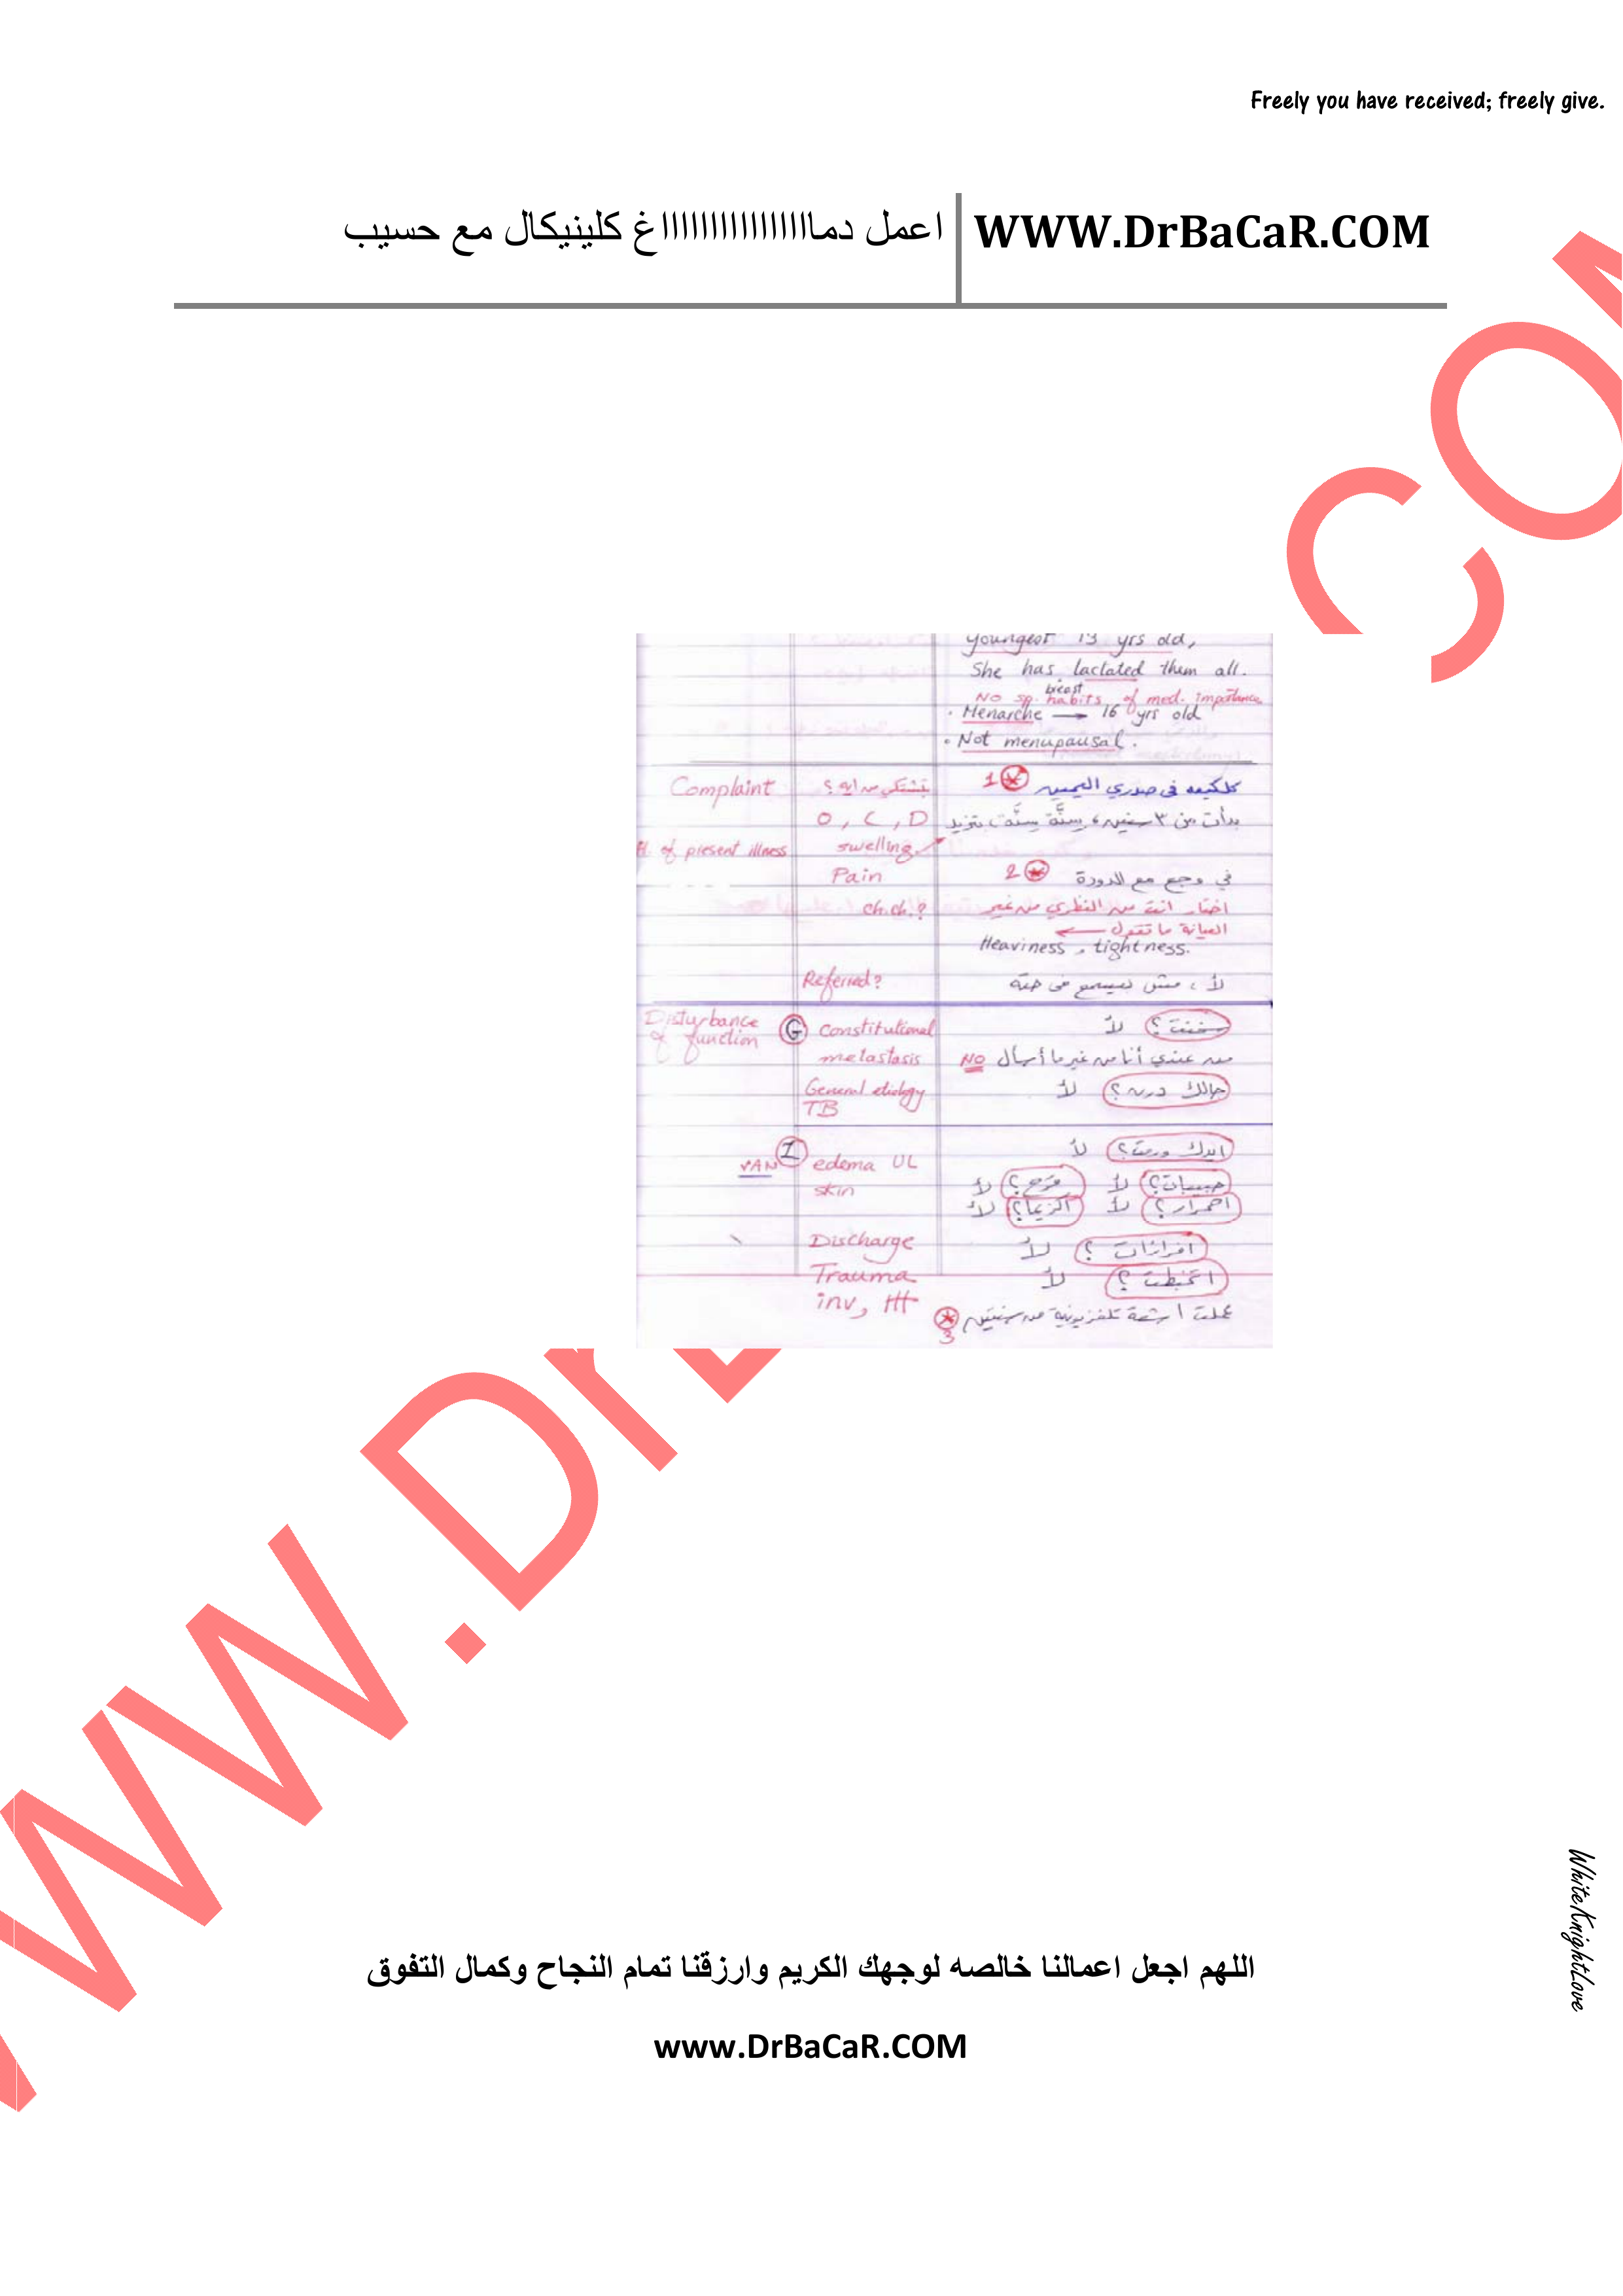 Freely you have received; freely give.
اعمل دمااااااااااااااااغ كلينيكال مع حسيب
WWW.DrBaCaR.COM
youngest 13 yrs old,
She has lactated them all.
breast
No sp. habits of med. importance
• Menarche → 16 yrs old
• Not menupausal.
Complaint بتشتكي من ايه ؟ 1 كلكيعه في صدري اليمين
O, C, D بدأت من ٣ سنين، سِنَّة سِنَّة، بتزيد
H. of present illness swelling
Pain 2 في وجع مع الدورة
ch.ch.? اختار انت من النظري من غير
العيانة ما تقول
Heaviness, tightness.
Referred? لأ ، مش بيسمع في حتة
Disturbance of function G constitutional سخنت ؟ لأ
metastasis من عندي أنا من غير ما أسأل NO
General etiology جالك درن ؟ لأ
TB
VAN I edema UL ايدك ورمت؟ لأ
skin حبيبات؟ لأ قرح؟ لأ
احمرار؟ لأ اكزيما؟ لأ
Discharge افرازات ؟ لأ
Trauma اتخبطت ؟ لأ
inv, ttt 3 عملت اشعة تلفزيونية من سنتين
WhiteKnightLove
اللهم اجعل اعمالنا خالصه لوجهك الكريم وارزقنا تمام النجاح وكمال التفوق
www.DrBaCaR.COM
WWW.DrB COM